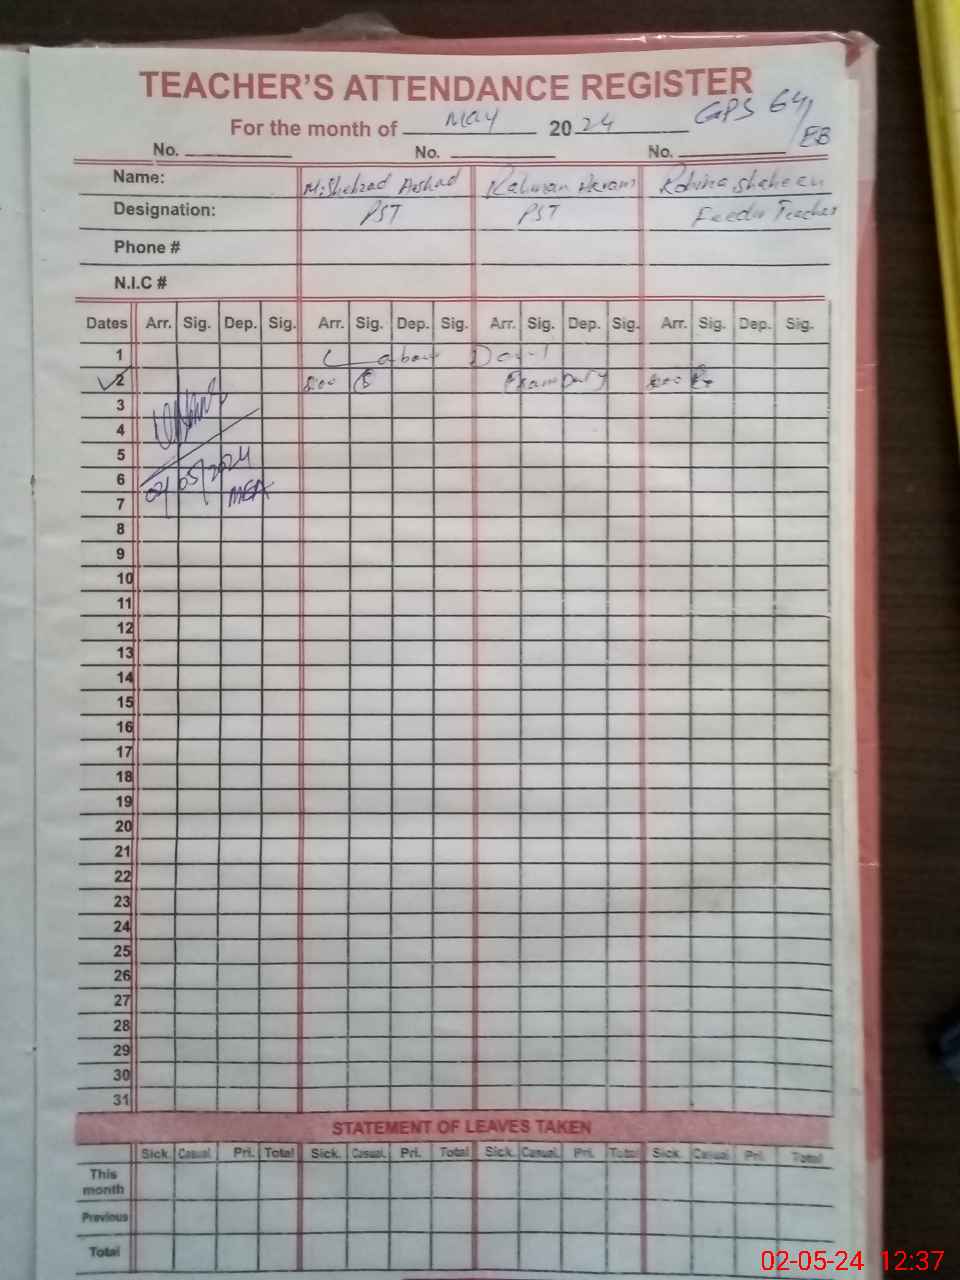 TEACHER'S ATTENDANCE REGISTER
For the month of May 2024 GPS 64/EB
No. No. No.
Name: M. Shehzad Arshad Rahman Akram Robina Shaheen
Designation: PST PST Feeder Teacher
Phone #
N.I.C #
Dates Arr. Sig. Dep. Sig. Arr. Sig. Dep. Sig. Arr. Sig. Dep. Sig. Arr. Sig. Dep. Sig.
1 Labour Day
2 Exam Duty
3
4
5
6
02/05/2024
7
MEA
8
9
10
11
12
13
14
15
16
17
18
19
20
21
22
23
24
25
26
27
28
29
30
31
STATEMENT OF LEAVES TAKEN
Sick. Casual. Pri. Total Sick. Casual. Pri. Total Sick. Casual. Pri. Total Sick. Casual. Pri. Total
This month
Previous
Total
02-05-24 12:37